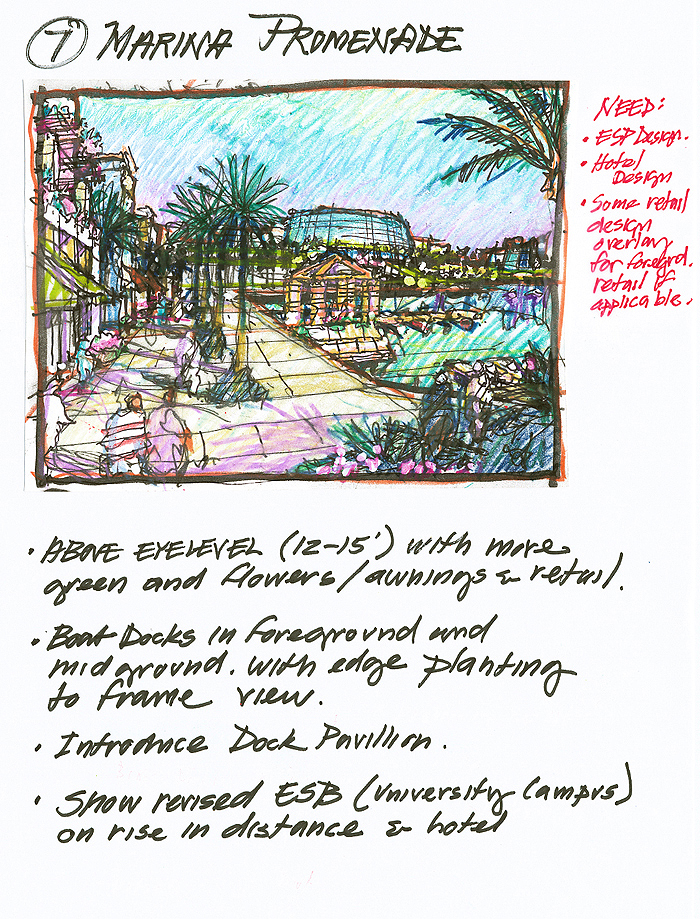 7 MARINA PROMENADE
NEED:
• ESP Design.
• Hotel
Design
• Some retail
design
overlay
for foregrd.
retail if
applicable.
• ABOVE EYELEVEL (12-15') with more
green and flowers/awnings & retail.
• Boat Docks in foreground and
midground. with edge planting
to frame view.
• Introduce Dock Pavilion.
• Show revised ESB (University Campus)
on rise in distance & hotel